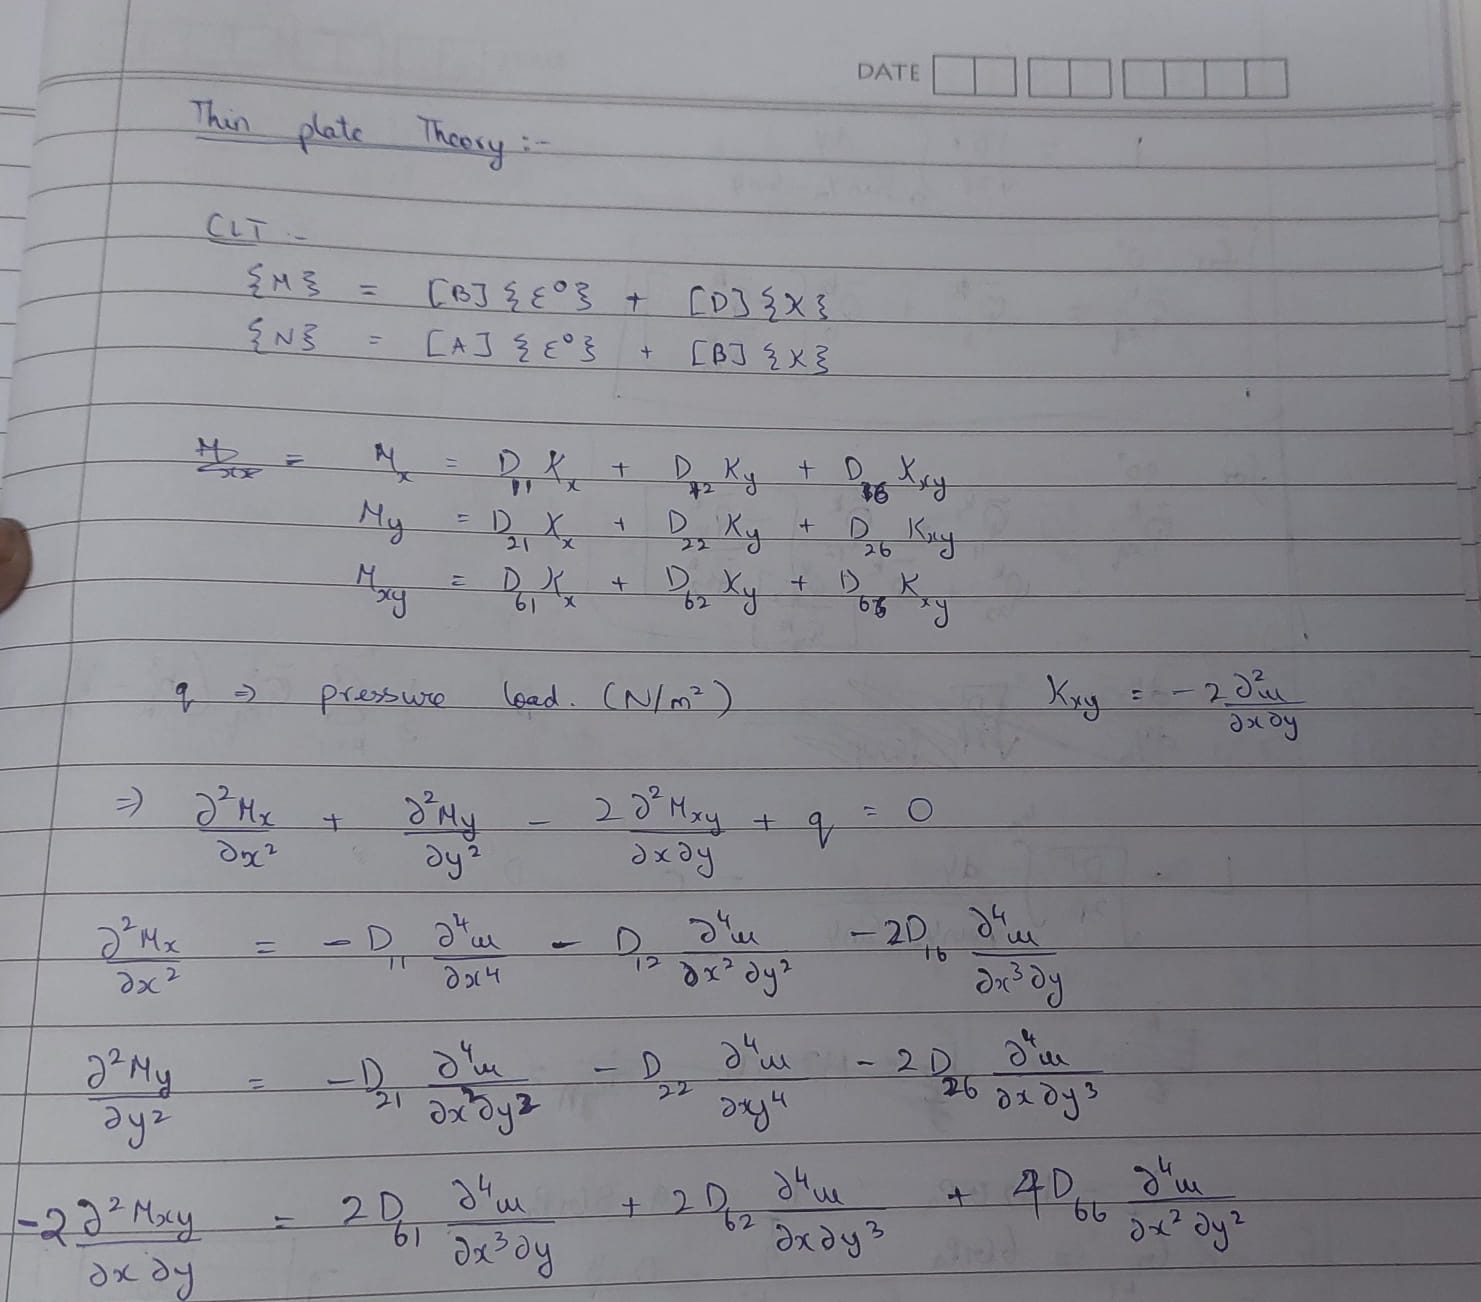 DATE
Thin plate Theory :-
CLT :-
{M} = [B] {ε⁰} + [D] {K}
{N} = [A] {ε⁰} + [B] {K}
M_x = D_11 K_x + D_12 K_y + D_16 K_xy
M_y = D_21 K_x + D_22 K_y + D_26 K_xy
M_xy = D_61 K_x + D_62 K_y + D_66 K_xy
q ⇒ pressure load. (N/m²) K_xy = -2 ∂²w/∂x∂y
⇒ ∂²M_x/∂x² + ∂²M_y/∂y² - 2 ∂²M_xy/∂x∂y + q = 0
∂²M_x/∂x² = - D_11 ∂⁴w/∂x⁴ - D_12 ∂⁴w/∂x²∂y² - 2D_16 ∂⁴w/∂x³∂y
∂²M_y/∂y² = - D_21 ∂⁴w/∂x²∂y² - D_22 ∂⁴w/∂y⁴ - 2D_26 ∂⁴w/∂x∂y³
-2 ∂²M_xy/∂x∂y = 2D_61 ∂⁴w/∂x³∂y + 2D_62 ∂⁴w/∂x∂y³ + 4D_66 ∂⁴w/∂x²∂y²